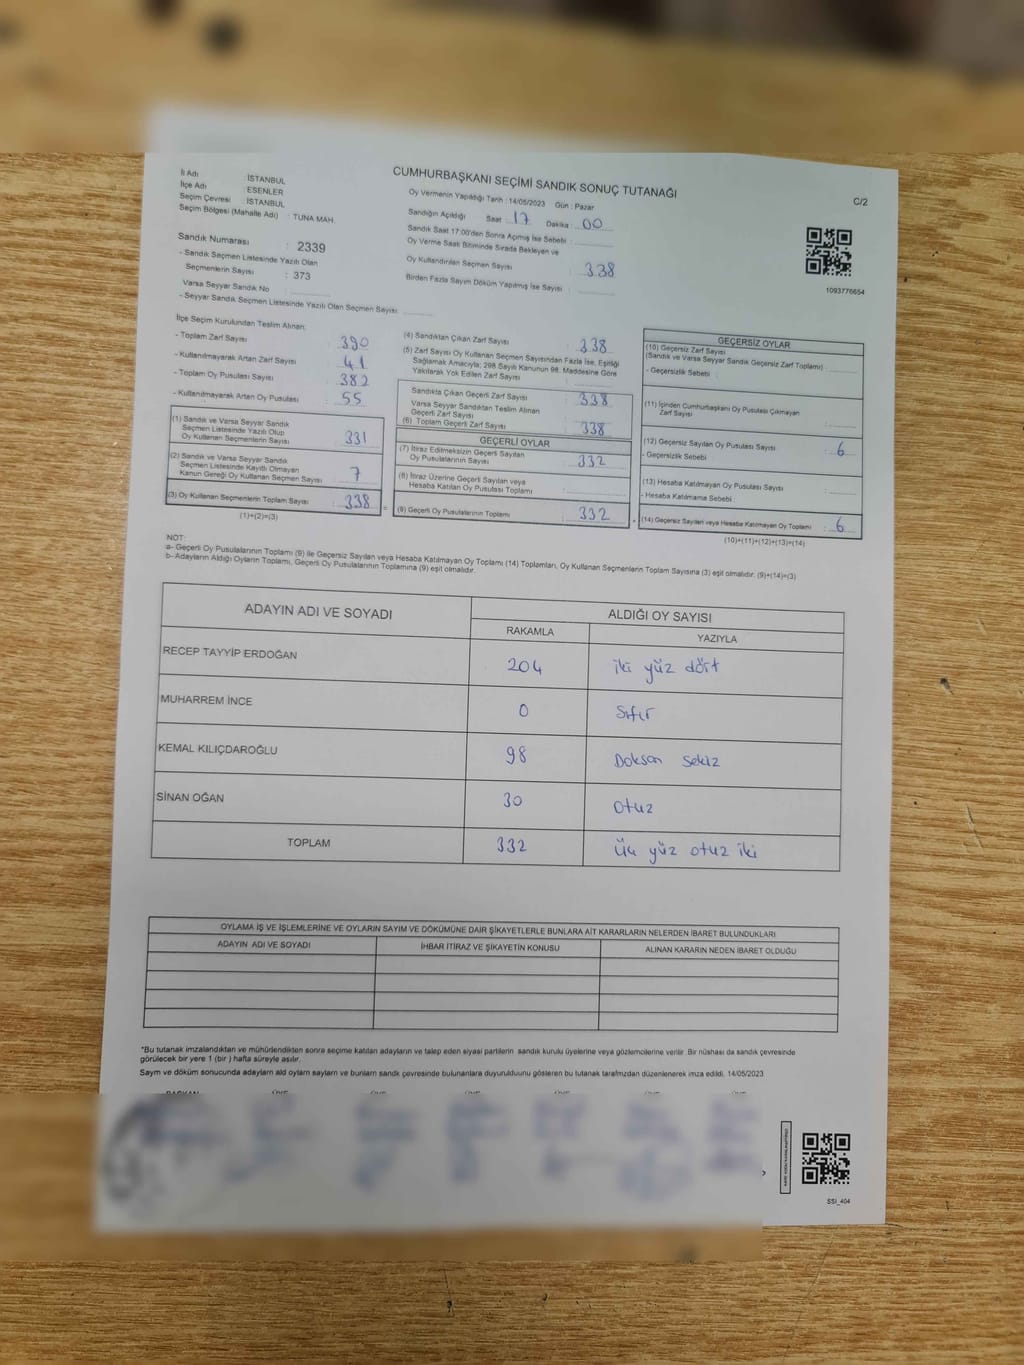 CUMHURBAŞKANI SEÇİMİ SANDIK SONUÇ TUTANAĞI
C/2
İl Adı : İSTANBUL
İlçe Adı : ESENLER
Seçim Çevresi : İSTANBUL
Seçim Bölgesi (Mahalle Adı) : TUNA MAH.
Sandık Numarası : 2339
- Sandık Seçmen Listesinde Yazılı Olan
Seçmenlerin Sayısı : 373
Varsa Seyyar Sandık No
- Seyyar Sandık Seçmen Listesinde Yazılı Olan Seçmen Sayısı:
Oy Vermenin Yapıldığı Tarih : 14/05/2023 Gün : Pazar
Sandığın Açıldığı Saat : 17 Dakika : 00
Sandık Saat 17:00'den Sonra Açımış İse Sebebi :
Oy Verme Saati Bitiminde Sırada Bekleyen ve
Oy Kullandırılan Seçmen Sayısı : 338
Birden Fazla Sayım Döküm Yapılmış İse Sayısı :
1093776654
İlçe Seçim Kurulundan Teslim Alınan:
- Toplam Zarf Sayısı : 390
- Kullanılmayarak Artan Zarf Sayısı : 41
- Toplam Oy Pusulası Sayısı : 382
- Kullanılmayarak Artan Oy Pusulası : 55
(1) Sandık ve Varsa Seyyar Sandık
Seçmen Listesinde Yazılı Olup
Oy Kullanan Seçmenlerin Sayısı : 331
(2) Sandık ve Varsa Seyyar Sandık
Seçmen Listesinde Kayıtlı Olmayan
Kanun Gereği Oy Kullanan Seçmen Sayısı : 7
(3) Oy Kullanan Seçmenlerin Toplam Sayısı : 338
(1)+(2)=(3)
(4) Sandıktan Çıkan Zarf Sayısı : 338
(5) Zarf Sayısı Oy Kullanan Seçmen Sayısından Fazla İse, Eşitliği
Sağlamak Amacıyla; 298 Sayılı Kanunun 98. Maddesine Göre
Yakılarak Yok Edilen Zarf Sayısı :
Sandıkta Çıkan Geçerli Zarf Sayısı : 338
Varsa Seyyar Sandıktan Teslim Alınan
Geçerli Zarf Sayısı
(6) Toplam Geçerli Zarf Sayısı : 338
GEÇERLİ OYLAR
(7) İtiraz Edilmeksizin Geçerli Sayılan
Oy Pusulalarının Sayısı : 332
(8) İtiraz Üzerine Geçerli Sayılan veya
Hesaba Katılan Oy Pusulası Toplamı :
(9) Geçerli Oy Pusulalarının Toplamı : 332
GEÇERSİZ OYLAR
(10) Geçersiz Zarf Sayısı
(Sandık ve Varsa Seyyar Sandık Geçersiz Zarf Toplamı) :
- Geçersizlik Sebebi :
(11) İçinden Cumhurbaşkanı Oy Pusulası Çıkmayan
Zarf Sayısı :
(12) Geçersiz Sayılan Oy Pusulası Sayısı : 6
- Geçersizlik Sebebi
(13) Hesaba Katılmayan Oy Pusulası Sayısı :
- Hesaba Katılmama Sebebi :
(14) Geçersiz Sayılan veya Hesaba Katılmayan Oy Toplamı : 6
(10)+(11)+(12)+(13)=(14)
NOT:
a- Geçerli Oy Pusulalarının Toplamı (9) ile Geçersiz Sayılan veya Hesaba Katılmayan Oy Toplamı (14) Toplamları, Oy Kullanan Seçmenlerin Toplam Sayısına (3) eşit olmalıdır. (9)+(14)=(3)
b- Adayların Aldığı Oyların Toplamı, Geçerli Oy Pusulalarının Toplamına (9) eşit olmalıdır.
ADAYIN ADI VE SOYADI ALDIĞI OY SAYISI
RAKAMLA YAZIYLA
RECEP TAYYİP ERDOĞAN 204 iki yüz dört
MUHARREM İNCE 0 Sıfır
KEMAL KILIÇDAROĞLU 98 Doksan sekiz
SİNAN OĞAN 30 otuz
TOPLAM 332 Üç yüz otuz iki
OYLAMA İŞ VE İŞLEMLERİNE VE OYLARIN SAYIM VE DÖKÜMÜNE DAİR ŞİKAYETLERLE BUNLARA AİT KARARLARIN NELERDEN İBARET BULUNDUKLARI
ADAYIN ADI VE SOYADI İHBAR İTİRAZ VE ŞİKAYETİN KONUSU ALINAN KARARIN NEDEN İBARET OLDUĞU
*Bu tutanak imzalandıktan ve mühürlendikten sonra seçime katılan adayların ve talep eden siyasi partilerin sandık kurulu üyelerine veya gözlemcilerine verilir. Bir nüshası da sandık çevresinde
görülecek bir yere 1 (bir ) hafta süreyle asılır.
Sayım ve döküm sonucunda adayların aldı oyların sayıların ve bunların sandık çevresinde bulunanlara duyurulduunu gösteren bu tutanak tarafımızdan düzenlenerek imza edildi. 14/05/2023
BAŞKAN ÜYE ÜYE ÜYE ÜYE ÜYE ÜYE
SSI_404